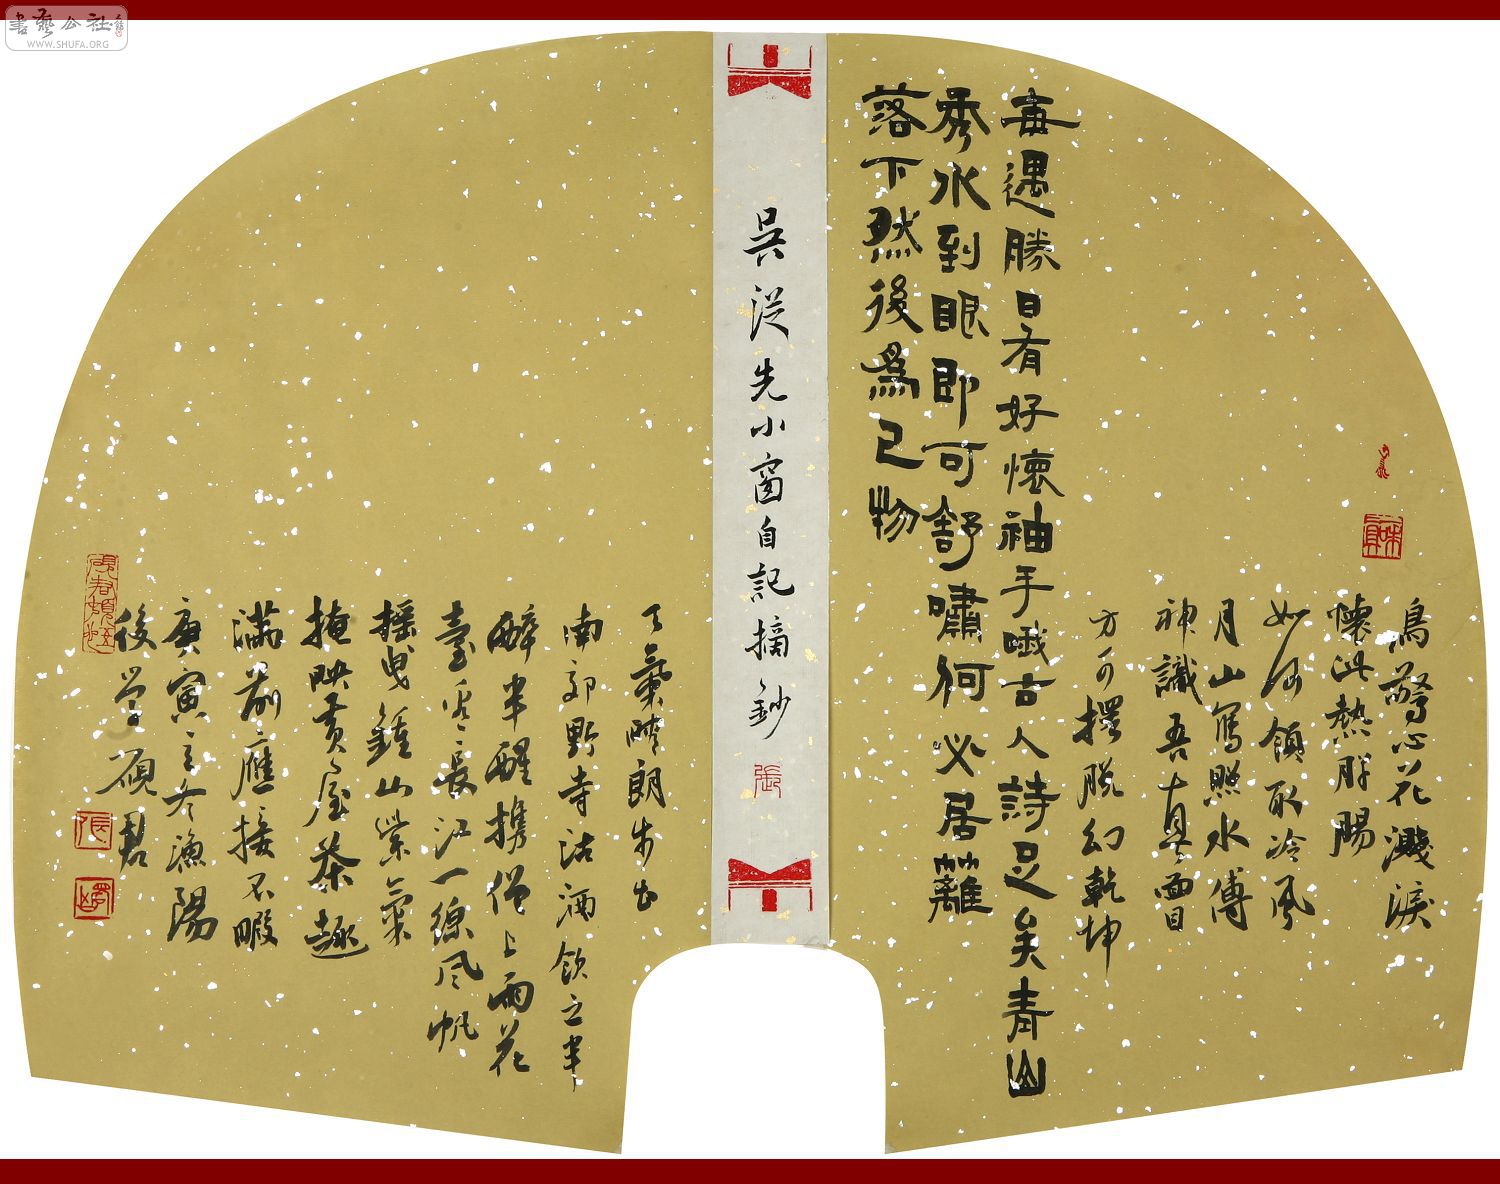 書藝公社
WWW.SHUFA.ORG
鳥驚心花濺淚
懷此熱肝腸
如何領取冷風
月山寫照水傳
神識吾真面目
方可擺脫幻乾坤
每遇勝日有好懷袖手哦古人詩足矣青山
秀水到眼即可舒嘯何必居籬
落下然後為己物
吳從先小窗自記摘鈔
張
天氣晴朗步出
南郭野寺沽酒飲之半
醉半醒攜僧上雨花
臺看長江一線風帆
搖曳鍾山紫氣
掩映黃屋景趣
滿前應接不暇
庚寅立冬漁陽
後學碩君
張